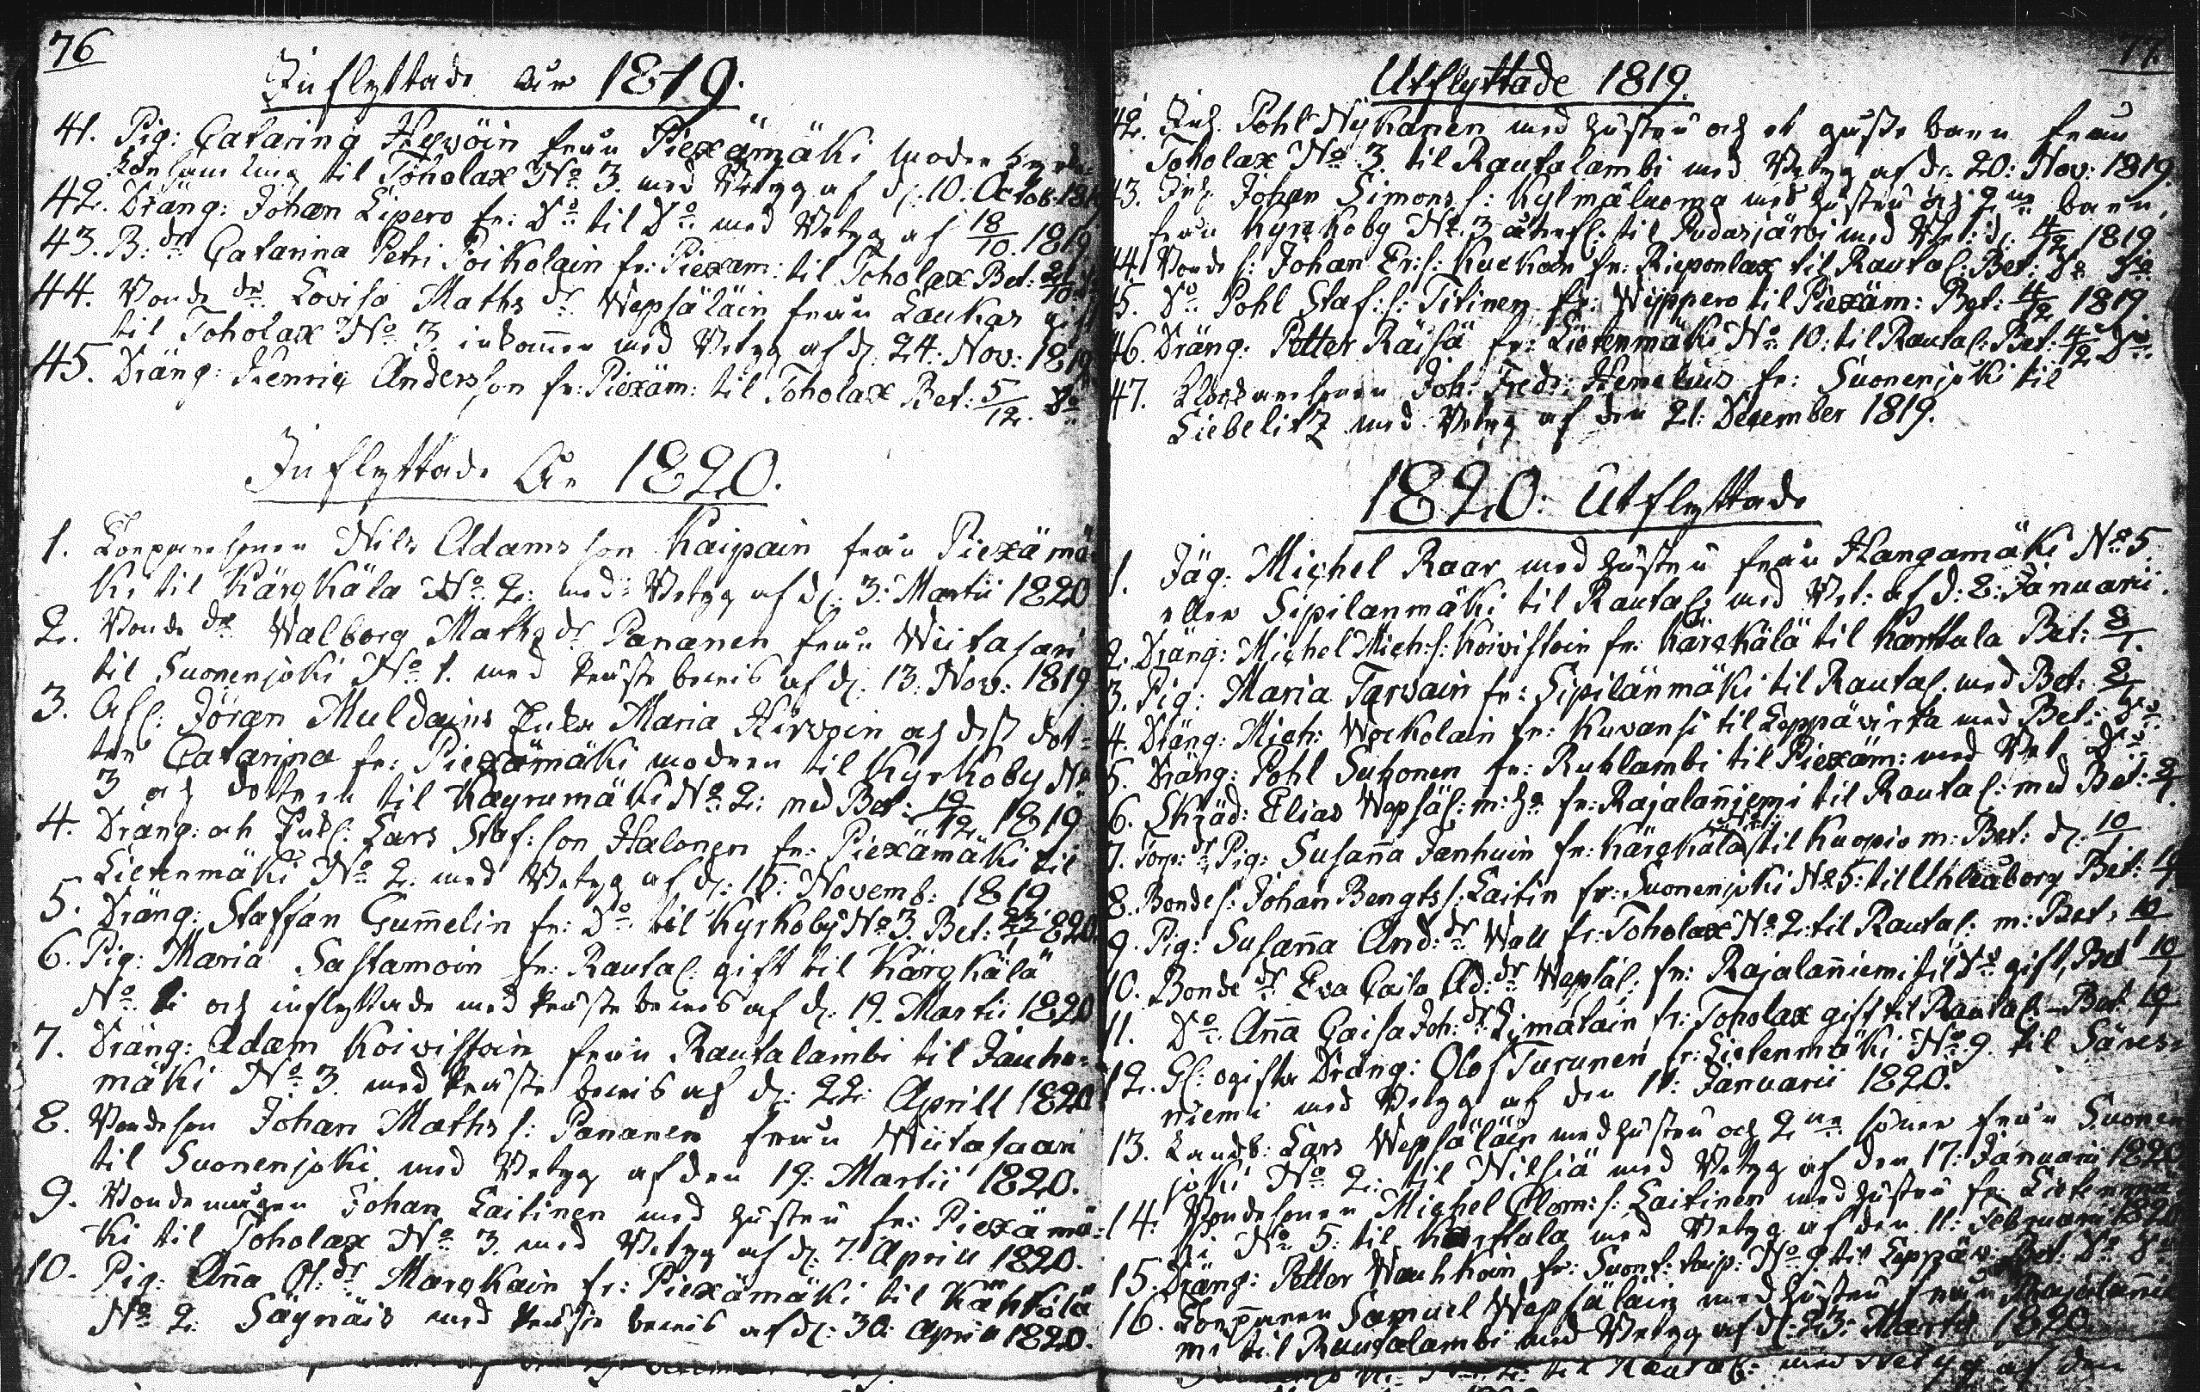 76
Inflyttade År 1819.
41. Pig: Catarina Hyvöin från Piexämäki
til Toholax No 3. med Betyg af d. 10. Octob. 1819
42. Dräng: Johan Lipero fr: Do til Do med Betyg af 18/10. 1819
43. B: dr Catarina Petri Poikolain fr: Piexäm: til Toholax Bet: 21/10
44. Bonde dr Lovisa Maths dr Wepsäläin från Laukas gift
til Toholax No 3 inkommen med Betyg af d. 24. Nov: 1819
45. Dräng: Henric Andersson fr: Piexäm: til Toholax Bet: 5/12. Do
Inflyttade År 1820.
1. Torparesonen Nils Adamsson Kaipain från Piexämä
ki til Kärgkäla No 2: med Betyg af d. 3: Martii 1820
2. Bonde dr Walborg Maths dr Pananen från Wiitasari
til Suonenjoki No 1. med Prästebevis af d. 13: Nov: 1819
3. Afl: Jöran Muldains Enka Maria Hirvoin och dess dot-
ter Catarina fr: Piexämäki modren til Kyrkoby No
3 och dottren til Kägrumäki No 2: med Bet: 12/12 1819
4. Dräng: och Enkl: Lars Staf: son Halonen fr: Piexämäki til
Lietenmäki No 2. med Betyg af d. 15: Novemb: 1819
5. Dräng: Staffan Gummelin fr: Do til Kyrkoby No 3. Bet: 820
6. Pig: Maria Sastamoin fr: Rautal: gift til Kärgkälä
No och inflyttade med Prästebevis af d. 19. Martii 1820
7. Dräng: Adam Koivistoin från Rautalambi til Jauho-
mäki No 3. med Prästebevis af d. 22: Aprill 1820
8. Bondeson Johan Maths s: Pananen från Wiitasaari
til Suonenjoki med Betyg af den 19: Martii 1820.
9. Bondemågen Johan Laitinen med hustru fr: Piexämä-
ki til Toholax No 3. med Betyg af d. 7. Aprill 1820.
10. Pig: Anna Ol: dr Margkain fr: Piexämäki til
No 2: Sägnäis med Prästebevis af d: 30: April 1820.
77.
Utflyttade 1819.
42. Inh. Pohl Nykänen med hustru och et guste barn från
Toholax No 3. til Rautalambi med Betyg af d. 20: Nov: 1819.
43. Inh. Johan Simons s: Kylmäluoma med hustru och 2ne barn,
från Kyrkoby No 3 til Pudasjärvi med Bet: d. 4/12 1819.
44. Bonde s: Johan Er: s: Kuckon fr: Rieponlax til Rautal: Bet: Do Do
45. Do Pohl Staf: s: Titinen fr: Wippero til Piexäm: Bet: 4/12 1819.
46. Dräng: Petter Räisä fr: Lietenmäki No 10: til Rautal: Bet: 4/12 Do
47. Klockaresonen Joh: Fredr: Hemelius fr: Suonenjoki til
Liebelitz med Betyg af den 21: December 1819.
1820: Utflyttade
1. Jäg: Michel Raar med hustru från Hangamäki No 5.
eller Sipilanmäki til Rautal: med Bet: af d: 2: Januarii.
2. Dräng: Michel Mich: s: Koivistoin fr: Kärgkälä til Karttula Bet: 8/1.
3. Pig: Maria Tarvain fr: Sipilänmäki til Rautal: med Bet: 2/1
4. Dräng: Mich: Wockolain fr: Kuvansi til Leppävirta med Bet: Do
5. Dräng: Pohl Suhonen fr: Ruklambi til Piexäm: med Bet Do
6. Skräd: Elias Wepsäl: m: ho fr: Rajalanniemi til Rautal: med Bet: 9/1
7. Torp: dr Pig: Susanna Janhuin fr: Kärgkälä til Kuopio m: Bet: d: 10/1
8. Bonde s: Johan Bengts s: Laitin fr: Suonenjoki No 5: til Uhleåborg Bet: 10/1
9. Pig: Susanna And: dr Wall fr: Toholax No 2: til Rautal: m: Bet: 10/1
10. Bonde dr Eva Caisa Ad: dr Wepsäl: fr: Rajalanniemi til Do gift, Bet 10/1
11. Do Anna Caisa Joh: dr Limatain fr: Toholax gift til Rautal: Bet: 10/1
12. Gl: ogifta Dräng: Olof Turunen fr: Lietenmäki No 9. til Säres-
niemi med Betyg af den 11: Januarii 1820.
13. Landb: Lars Wepsäläin med hustru och 2ne söner från Suonen
joki No 2: til Nilsiä med Betyg af den 17: Januarii 1820
14. Bondesonen Michel Clom: s: Laitinen med hustru fr: Lietenmä
ki No 5: til Karttula med Betyg af den 11: Februarii 1820
15. Dräng: Petter Wauhkoin fr: Suont: taip: No 9 til Leppäv: Bet: Do Do
16. Torparen Samuel Wepsäläin med hustru från Rajalannie
mi til Rautalambi med Betyg af d: 23: Martii 1820
til Rautal: med Betyg af den